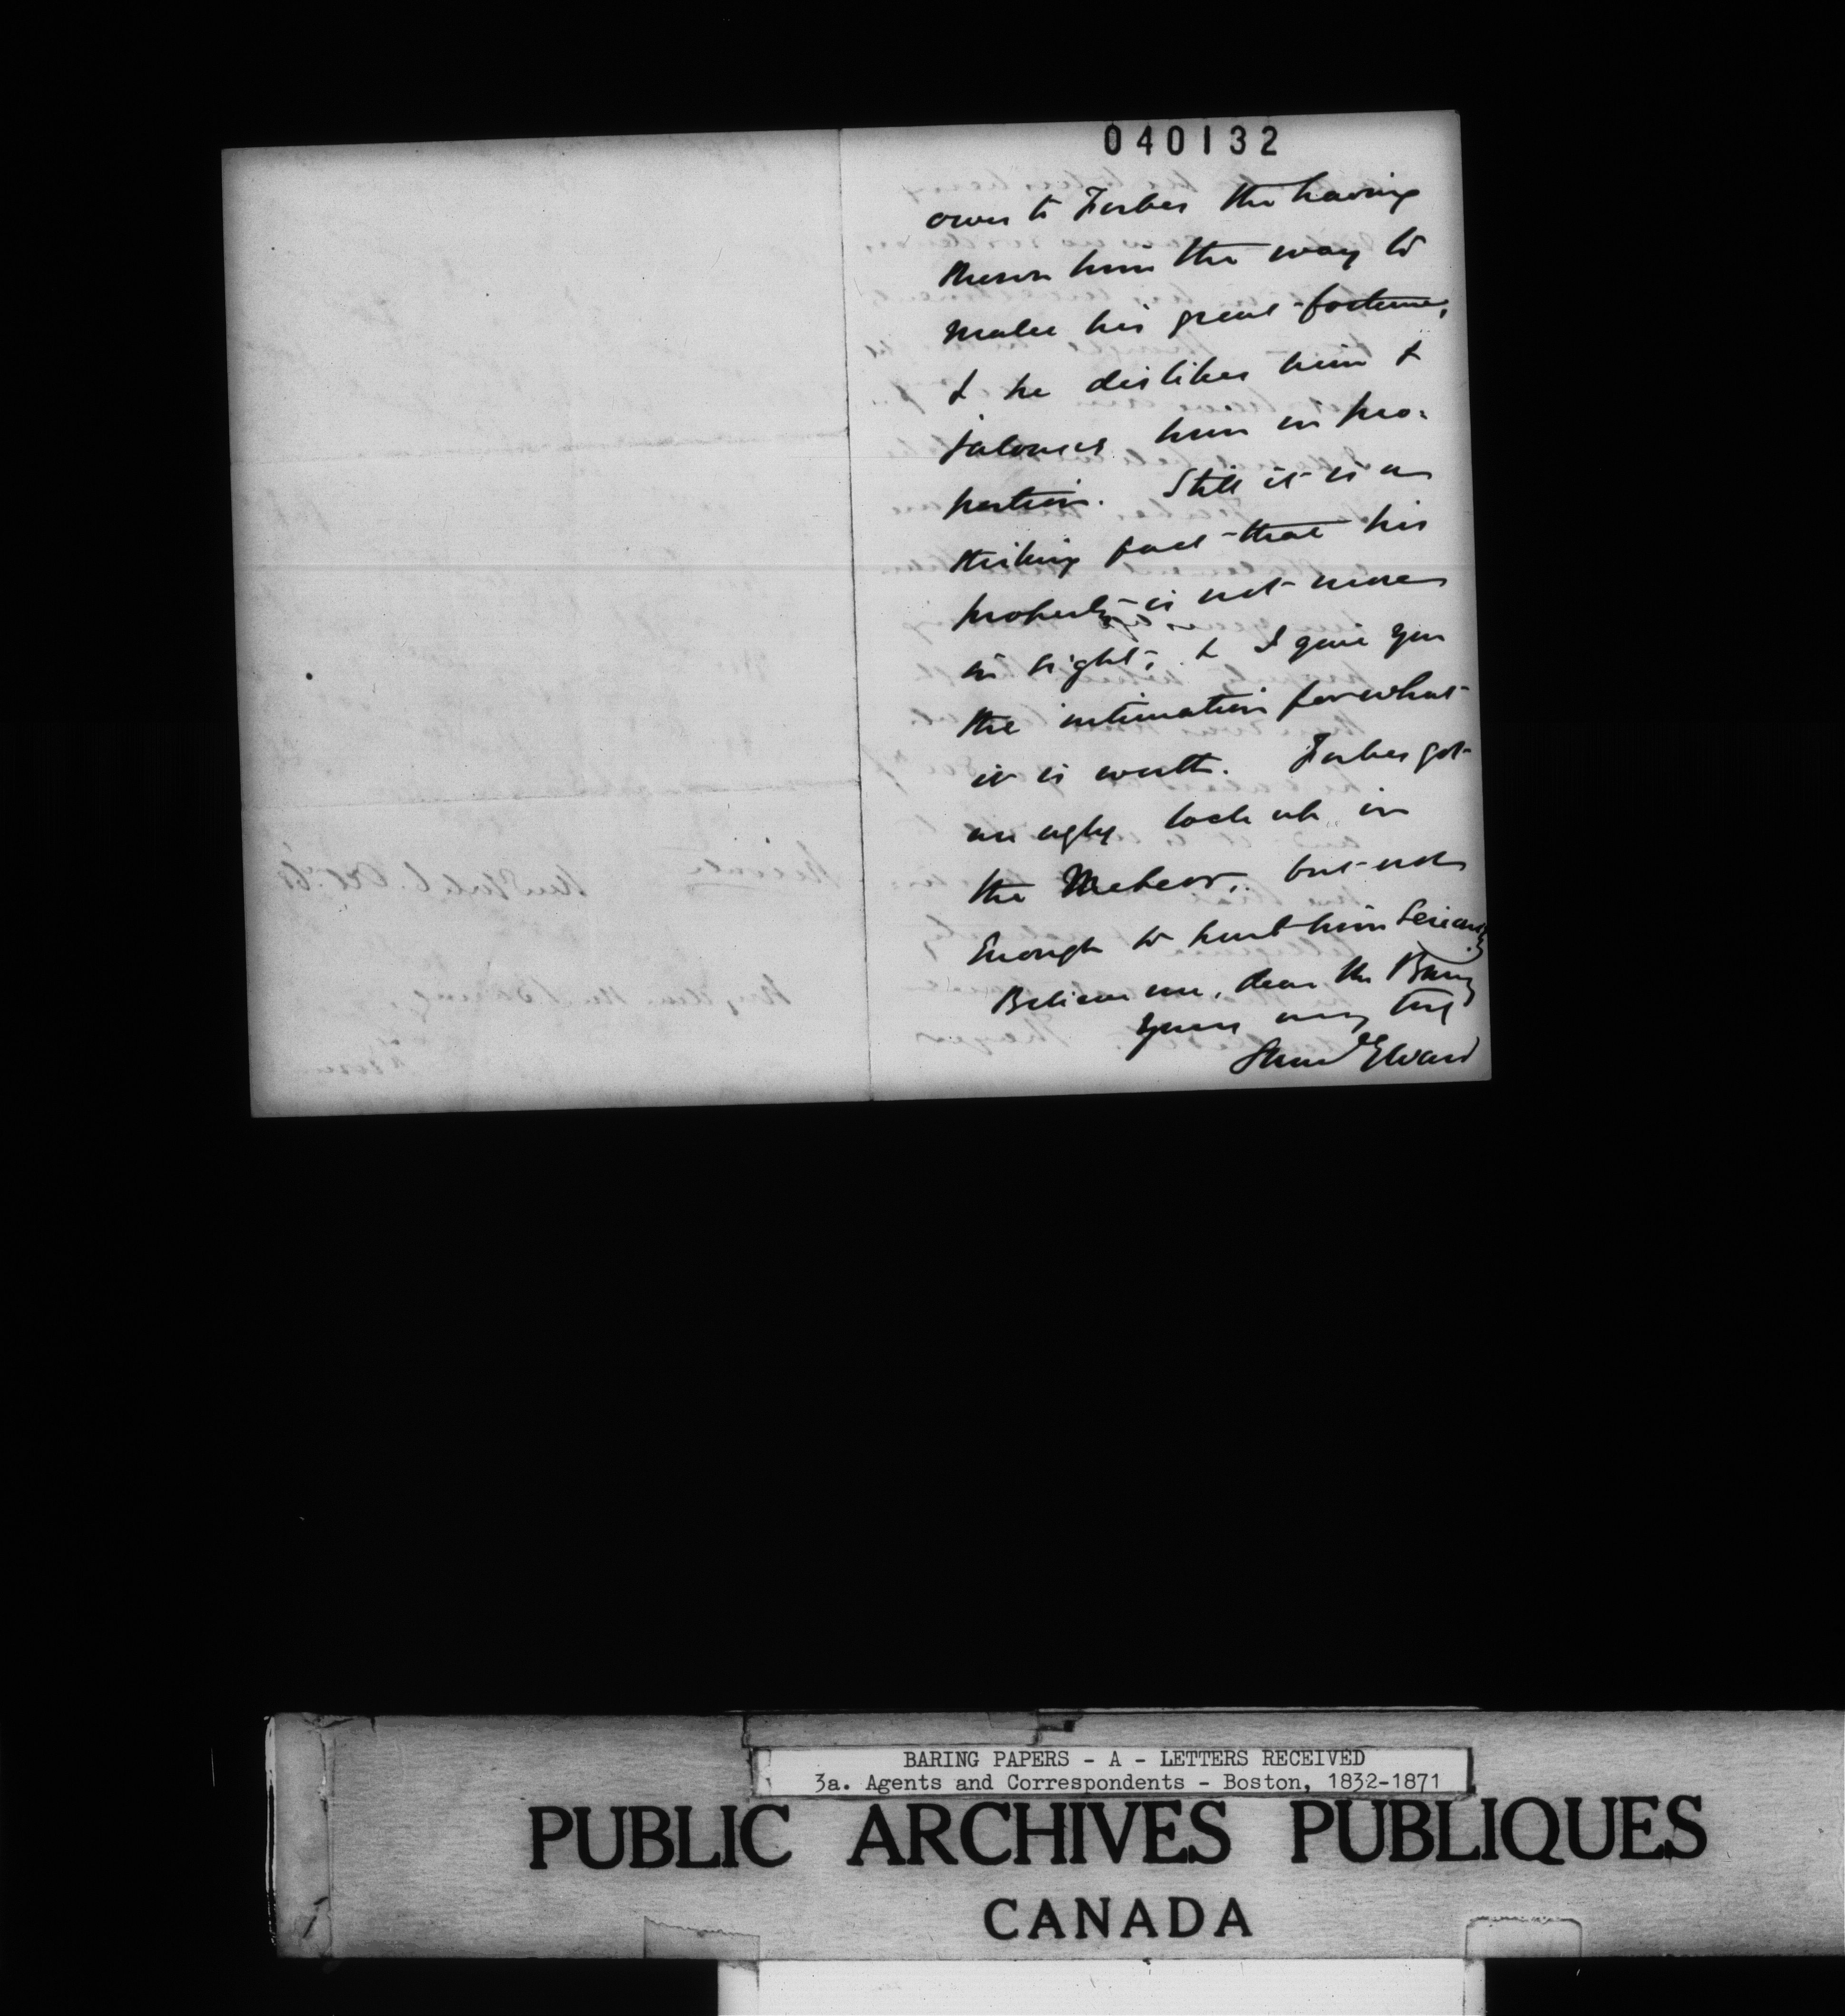 040132
owes to Forbes the having
shown him the way to
make his great fortune,
& he dislikes him &
jalouses him in pro-
portion. Still it is a
striking fact that his
property is not more
in sight; & I give you
the intimation for what
it is worth. Forbes got
an ugly lock up in
the Meteor, but not
enough to hurt him seriously
Believe me, dear Mr Baring
yours very truly
Sam G Ward
BARING PAPERS - A - LETTERS RECEIVED
3a. Agents and Correspondents - Boston, 1832-1871
PUBLIC ARCHIVES PUBLIQUES
CANADA